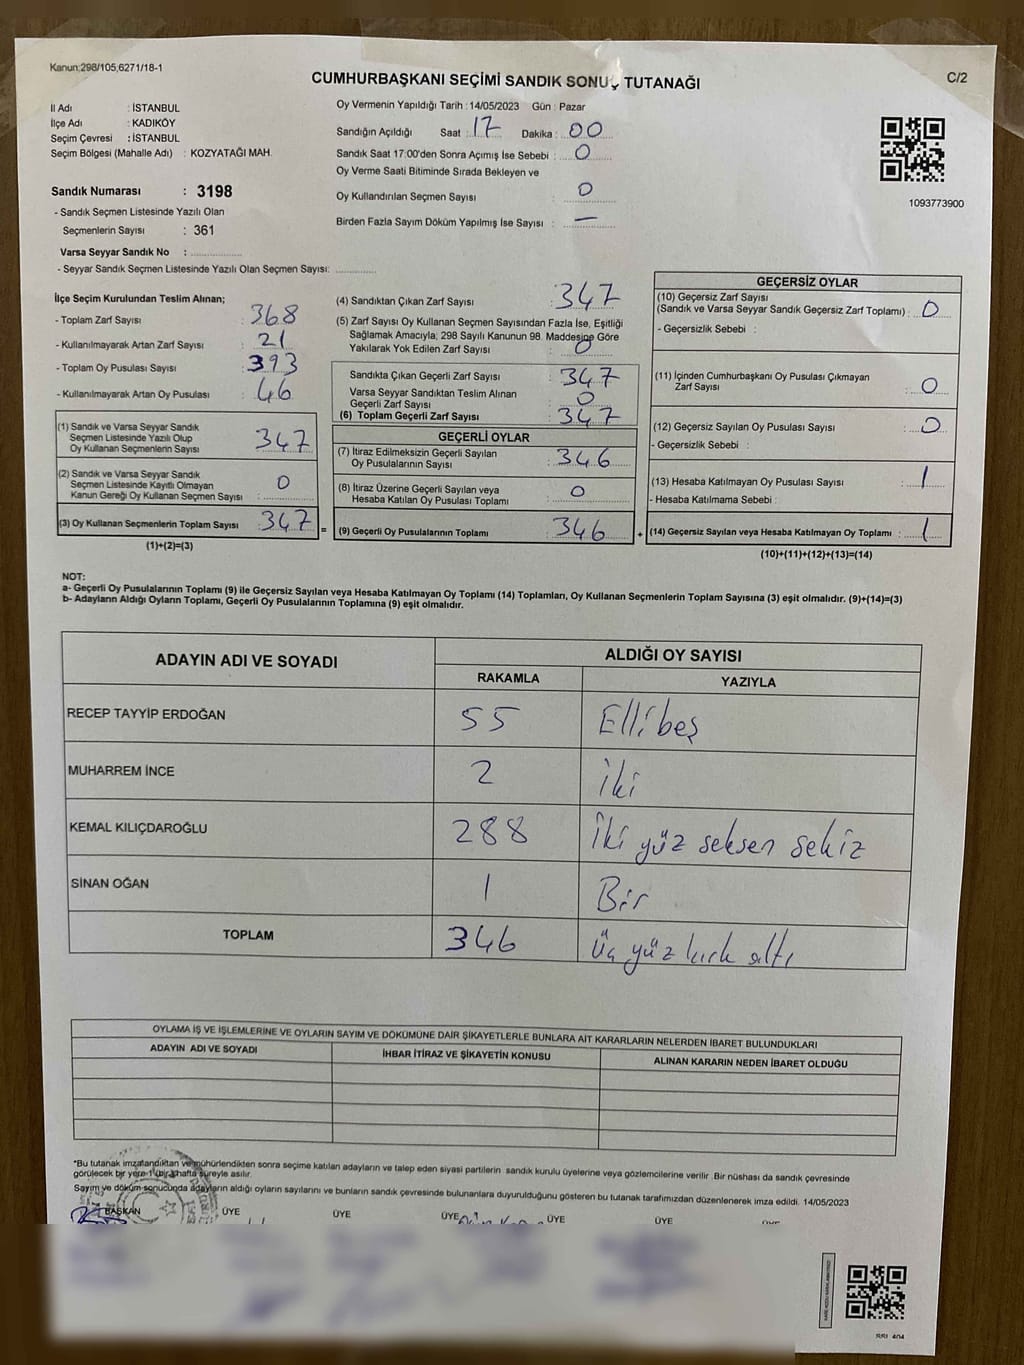 Kanun:298/105,6271/18-1
CUMHURBAŞKANI SEÇİMİ SANDIK SONUÇ TUTANAĞI
C/2
İl Adı : İSTANBUL
İlçe Adı : KADIKÖY
Seçim Çevresi : İSTANBUL
Seçim Bölgesi (Mahalle Adı) : KOZYATAĞI MAH.
Sandık Numarası : 3198
- Sandık Seçmen Listesinde Yazılı Olan
Seçmenlerin Sayısı : 361
Varsa Seyyar Sandık No :
- Seyyar Sandık Seçmen Listesinde Yazılı Olan Seçmen Sayısı:
Oy Vermenin Yapıldığı Tarih : 14/05/2023 Gün : Pazar
Sandığın Açıldığı Saat : 17 Dakika : 00
Sandık Saat 17:00'den Sonra Açımış İse Sebebi : 0
Oy Verme Saati Bitiminde Sırada Bekleyen ve
Oy Kullandırılan Seçmen Sayısı : 0
Birden Fazla Sayım Döküm Yapılmış İse Sayısı : —
1093773900
İlçe Seçim Kurulundan Teslim Alınan;
- Toplam Zarf Sayısı : 368
- Kullanılmayarak Artan Zarf Sayısı : 21
- Toplam Oy Pusulası Sayısı : 393
- Kullanılmayarak Artan Oy Pusulası : 46
(1) Sandık ve Varsa Seyyar Sandık
Seçmen Listesinde Yazılı Olup
Oy Kullanan Seçmenlerin Sayısı : 347
(2) Sandık ve Varsa Seyyar Sandık
Seçmen Listesinde Kayıtlı Olmayan
Kanun Gereği Oy Kullanan Seçmen Sayısı : 0
(3) Oy Kullanan Seçmenlerin Toplam Sayısı : 347 =
(1)+(2)=(3)
(4) Sandıktan Çıkan Zarf Sayısı : 347
(5) Zarf Sayısı Oy Kullanan Seçmen Sayısından Fazla İse, Eşitliği
Sağlamak Amacıyla, 298 Sayılı Kanunun 98. Maddesine Göre
Yakılarak Yok Edilen Zarf Sayısı : 0
Sandıkta Çıkan Geçerli Zarf Sayısı : 347
Varsa Seyyar Sandıktan Teslim Alınan
Geçerli Zarf Sayısı : 0
(6) Toplam Geçerli Zarf Sayısı : 347
GEÇERLİ OYLAR
(7) İtiraz Edilmeksizin Geçerli Sayılan
Oy Pusulalarının Sayısı : 346
(8) İtiraz Üzerine Geçerli Sayılan veya
Hesaba Katılan Oy Pusulası Toplamı : 0
(9) Geçerli Oy Pusulalarının Toplamı : 346 +
GEÇERSİZ OYLAR
(10) Geçersiz Zarf Sayısı
(Sandık ve Varsa Seyyar Sandık Geçersiz Zarf Toplamı) : 0
- Geçersizlik Sebebi :
(11) İçinden Cumhurbaşkanı Oy Pusulası Çıkmayan
Zarf Sayısı : 0
(12) Geçersiz Sayılan Oy Pusulası Sayısı : 0
- Geçersizlik Sebebi :
(13) Hesaba Katılmayan Oy Pusulası Sayısı : 1
- Hesaba Katılmama Sebebi :
(14) Geçersiz Sayılan veya Hesaba Katılmayan Oy Toplamı : 1
(10)+(11)+(12)+(13)=(14)
NOT:
a- Geçerli Oy Pusulalarının Toplamı (9) ile Geçersiz Sayılan veya Hesaba Katılmayan Oy Toplamı (14) Toplamları, Oy Kullanan Seçmenlerin Toplam Sayısına (3) eşit olmalıdır. (9)+(14)=(3)
b- Adayların Aldığı Oyların Toplamı, Geçerli Oy Pusulalarının Toplamına (9) eşit olmalıdır.
ADAYIN ADI VE SOYADI
ALDIĞI OY SAYISI
RAKAMLA YAZIYLA
RECEP TAYYİP ERDOĞAN 55 Ellibeş
MUHARREM İNCE 2 İki
KEMAL KILIÇDAROĞLU 288 İki yüz seksen sekiz
SİNAN OĞAN 1 Bir
TOPLAM 346 Üç yüz kırk altı
OYLAMA İŞ VE İŞLEMLERİNE VE OYLARIN SAYIM VE DÖKÜMÜNE DAİR ŞİKAYETLERLE BUNLARA AİT KARARLARIN NELERDEN İBARET BULUNDUKLARI
ADAYIN ADI VE SOYADI İHBAR İTİRAZ VE ŞİKAYETİN KONUSU ALINAN KARARIN NEDEN İBARET OLDUĞU
*Bu tutanak imzalandıktan ve mühürlendikten sonra seçime katılan adayların ve talep eden siyasi partilerin sandık kurulu üyelerine veya gözlemcilerine verilir. Bir nüshası da sandık çevresinde
görülecek bir yere 1 (bir) hafta süreyle asılır.
Sayım ve döküm sonucunda adayların aldığı oyların sayılarını ve bunların sandık çevresinde bulunanlara duyurulduğunu gösteren bu tutanak tarafımızdan düzenlenerek imza edildi. 14/05/2023
BAŞKAN ÜYE ÜYE ÜYE ÜYE ÜYE